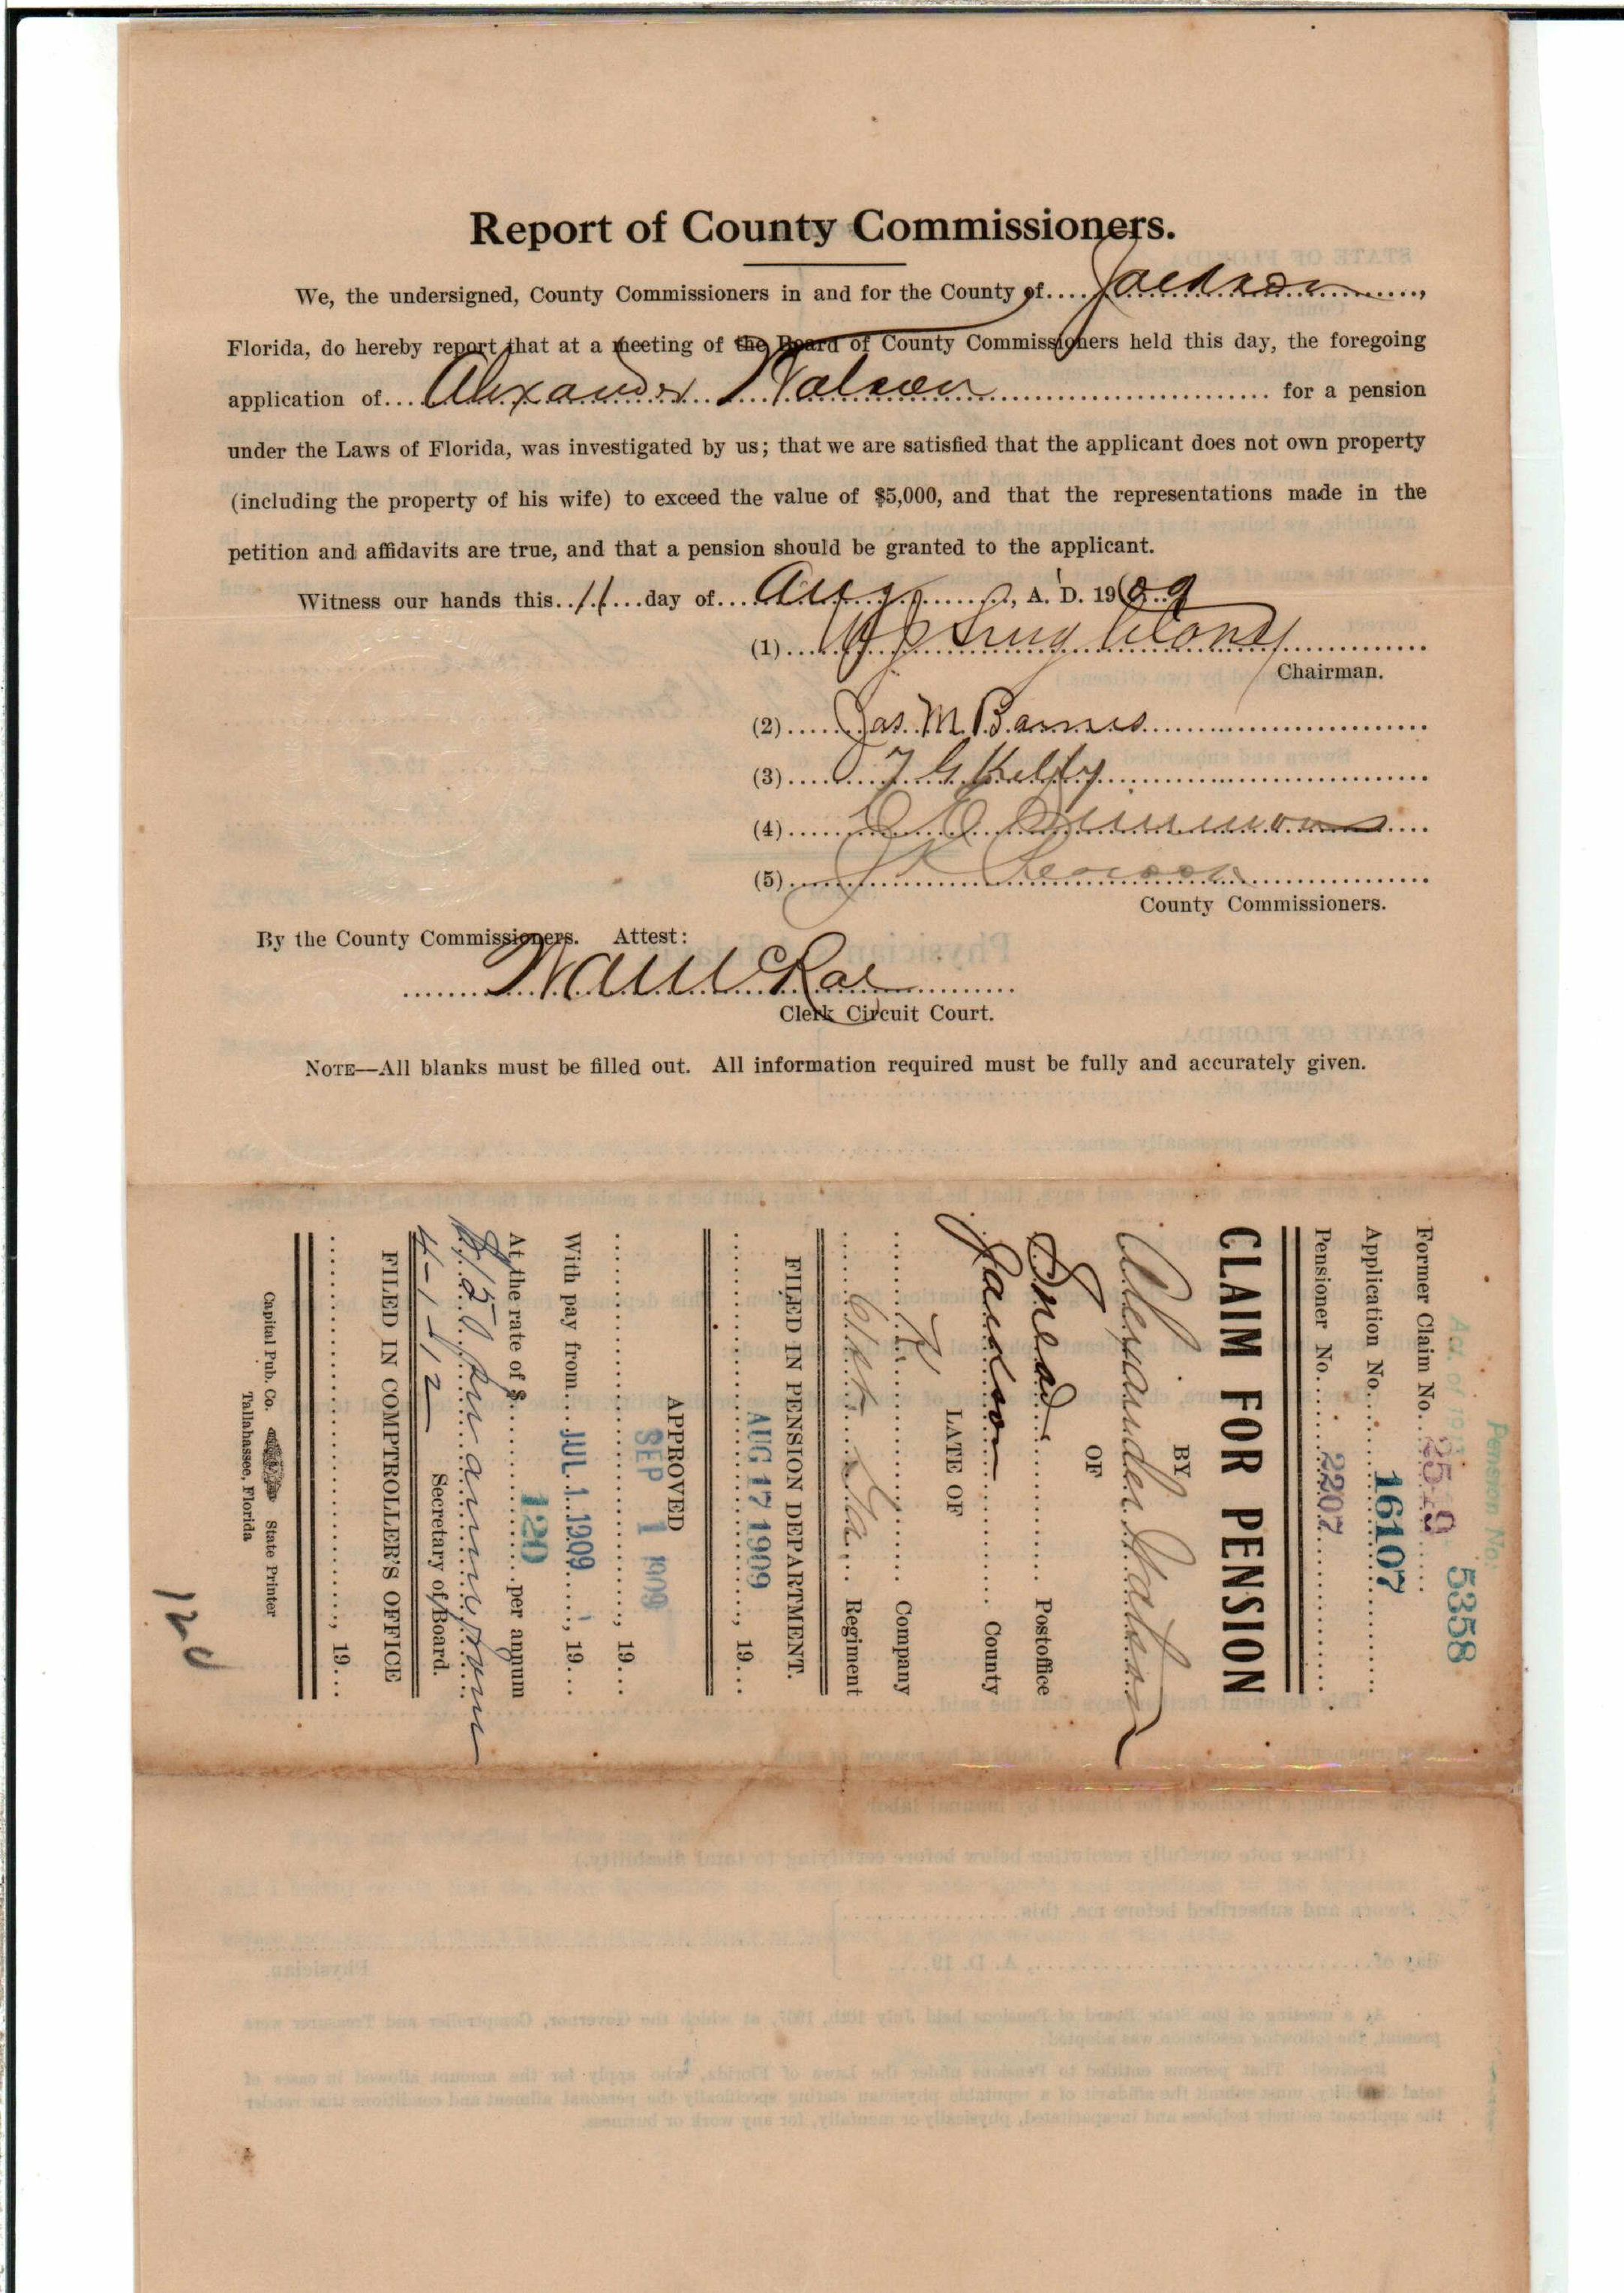 Report of County Commissioners.
We, the undersigned, County Commissioners in and for the County of.... Jackson ....,
Florida, do hereby report that at a meeting of the Board of County Commissioners held this day, the foregoing
application of... Alexander Watson .... for a pension
under the Laws of Florida, was investigated by us; that we are satisfied that the applicant does not own property
(including the property of his wife) to exceed the value of $5,000, and that the representations made in the
petition and affidavits are true, and that a pension should be granted to the applicant.
Witness our hands this..11...day of... Aug ...., A. D. 1909
(1)....
Chairman.
(2).... Jas. M. Barnes
(3).... Kelly
(4)....
(5)....
County Commissioners.
By the County Commissioners. Attest:
Clerk Circuit Court.
NOTE—All blanks must be filled out. All information required must be fully and accurately given.
Pension No.
5358
Act. of
Former Claim No.
Application No. 16107
Pensioner No. 2207
CLAIM FOR PENSION
BY
Alexander Watson
OF
Sneads Postoffice
Jackson County
LATE OF
K Company
6th Fla. Regiment
FILED IN PENSION DEPARTMENT.
AUG 17 1909 , 19...
APPROVED
SEP 1 1909
...., 19...
With pay from.... JUL 1 1909 ...., 19...
At the rate of $.... 120 ....per annum
$150 per annum from
4-1-12
Secretary of Board.
FILED IN COMPTROLLER'S OFFICE
...., 19...
Capital Pub. Co. State Printer
Tallahassee, Florida
120